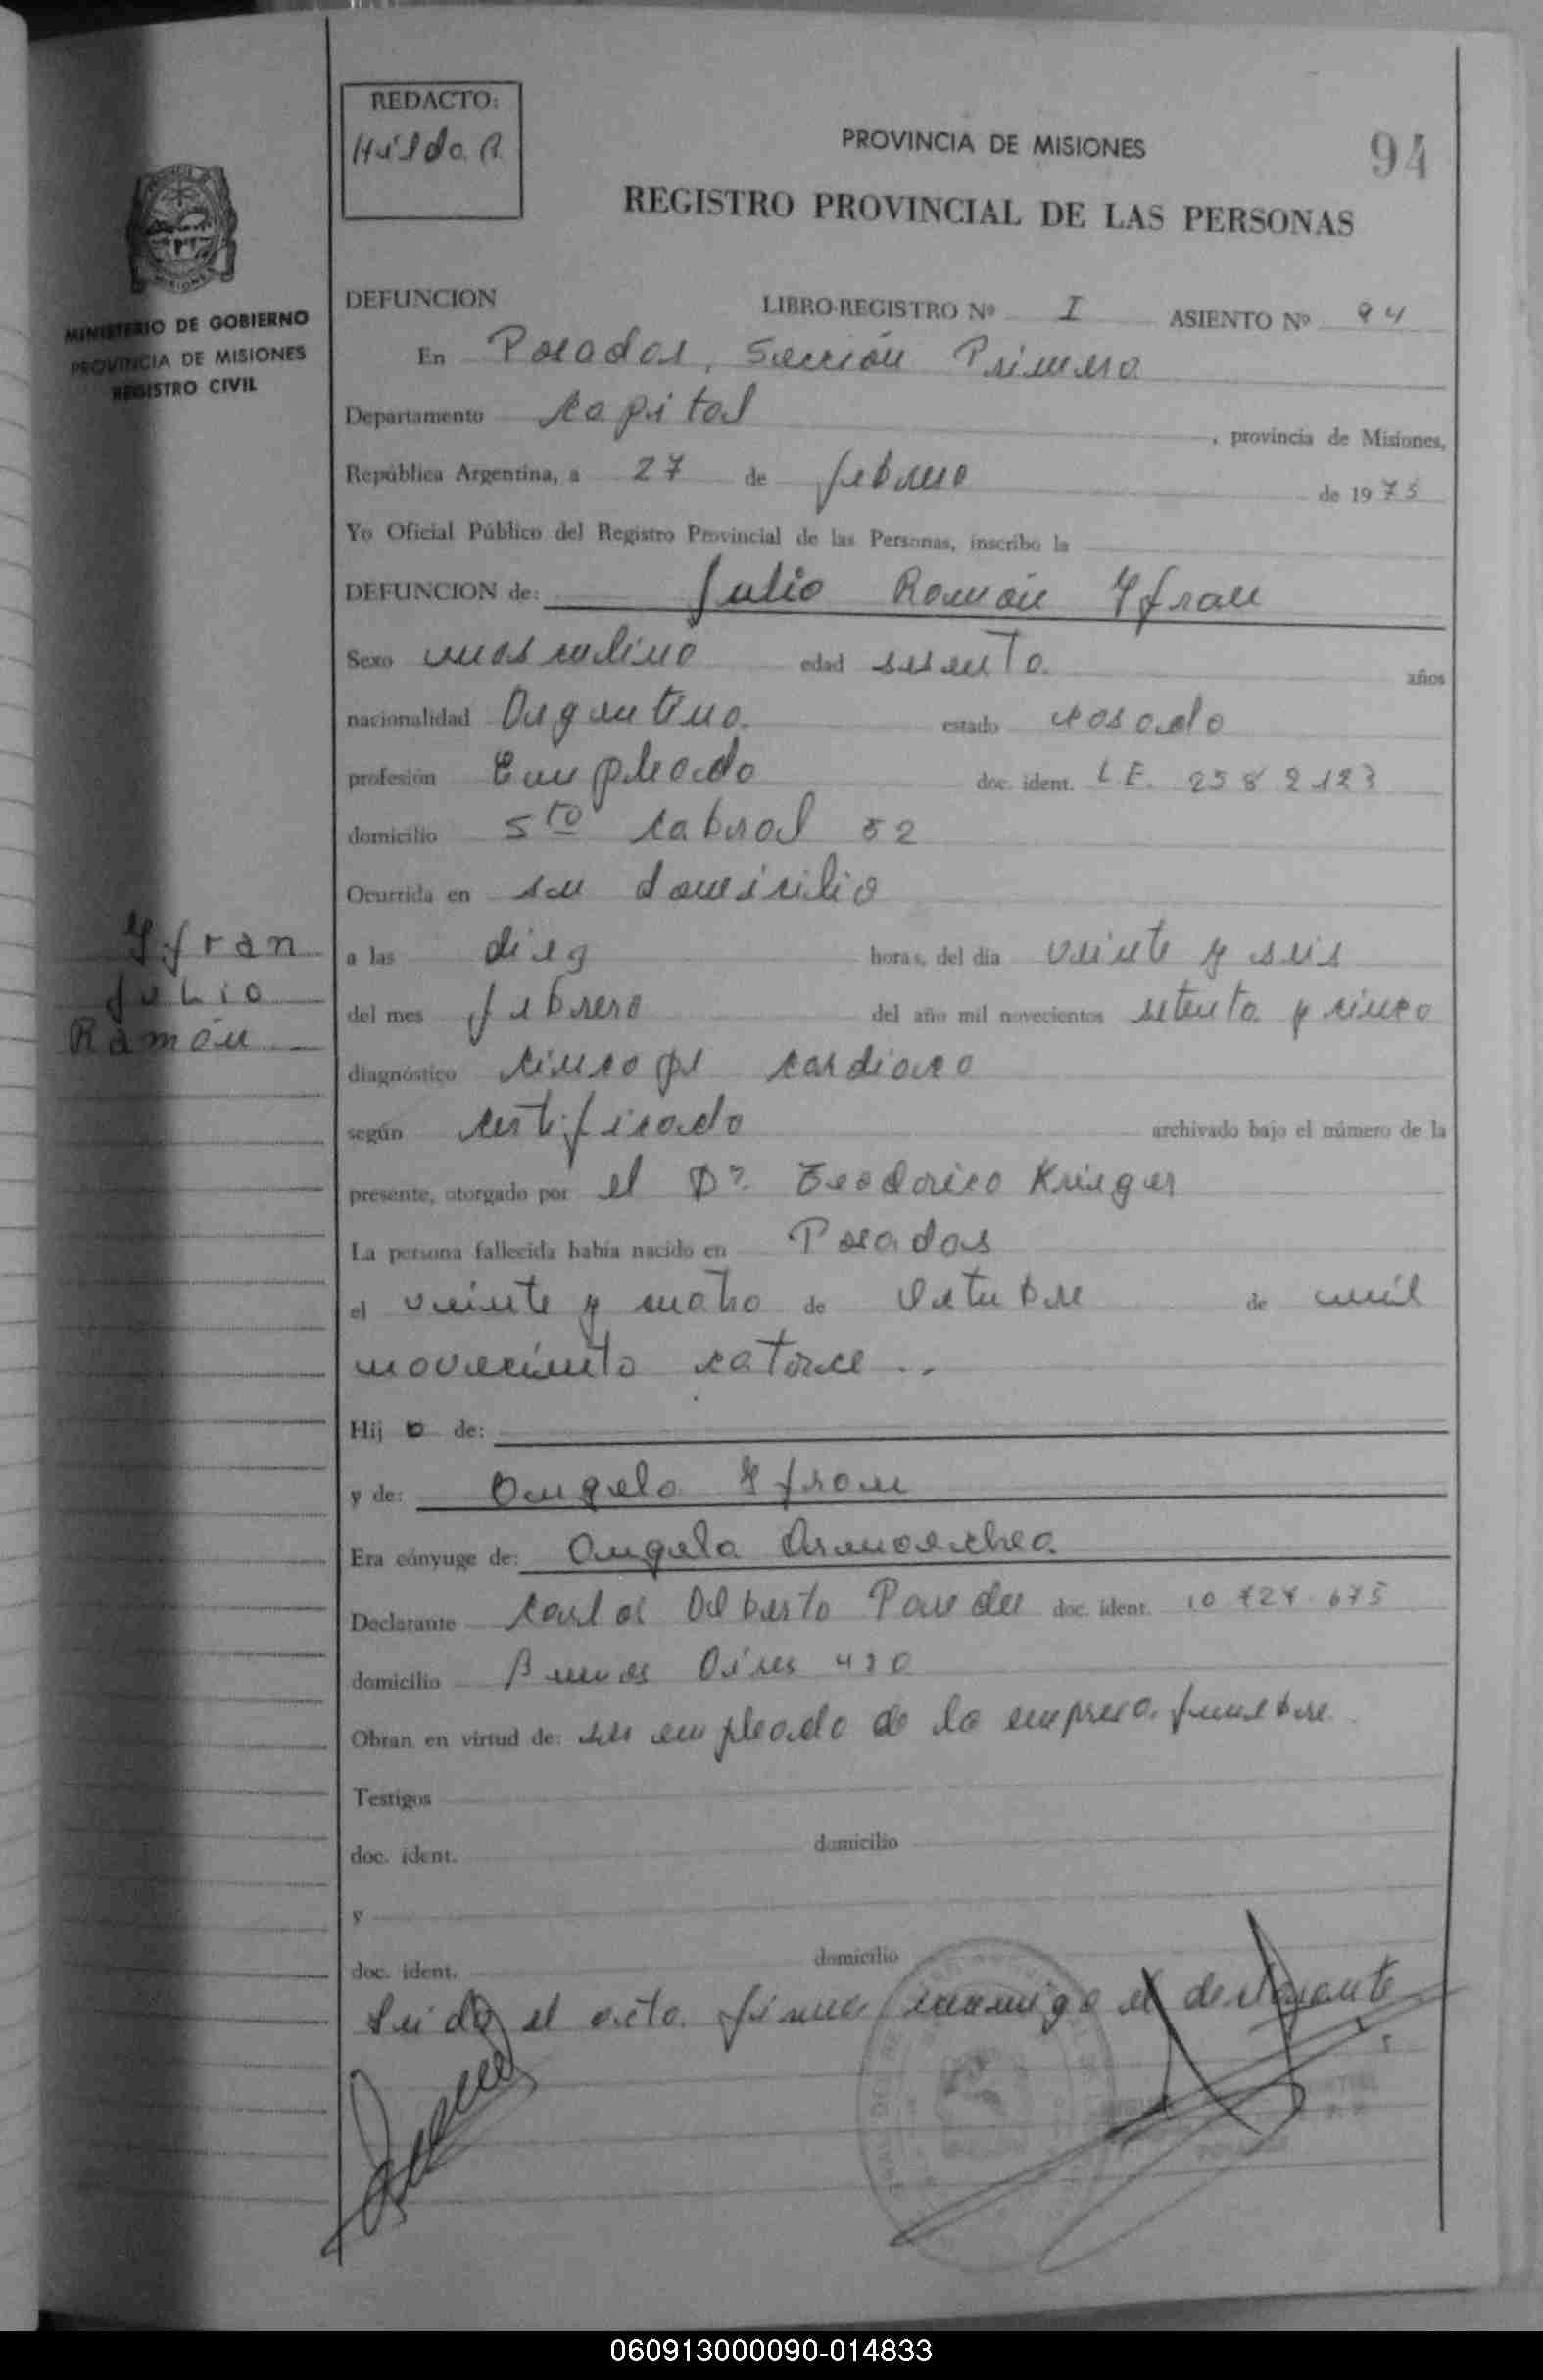 REDACTO:
Hilda R.
PROVINCIA DE MISIONES
94
REGISTRO PROVINCIAL DE LAS PERSONAS
MINISTERIO DE GOBIERNO
PROVINCIA DE MISIONES
REGISTRO CIVIL
DEFUNCION LIBRO-REGISTRO Nº I ASIENTO Nº 94
En Posadas, Sección Primera
Departamento Capital , provincia de Misiones,
República Argentina, a 27 de febrero de 1975
Yo Oficial Público del Registro Provincial de las Personas, inscribo la
DEFUNCION de: Julio Román Yfran
Sexo masculino edad sesenta años
nacionalidad Argentina estado casado
profesión Empleado doc. ident. L.E. 2582123
domicilio Sto Cabral 52
Ocurrida en su domicilio
a las diez horas, del día veinte y seis
del mes febrero del año mil novecientos setenta y cinco
diagnóstico cincope cardiaco
según certificado archivado bajo el número de la
presente, otorgado por el Dr. Teodorico Krieger
La persona fallecida había nacido en Posadas
el veinte y cuatro de Octubre de mil
novecientos catorce ..
Hij o de:
y de: Angela Yfran
Era cónyuge de: Angela
Declarante Carlos Alberto doc. ident. 10.727.675
domicilio Buenos Aires
Obran en virtud de: ser empleado de la empresa funebre
Testigos
doc. ident. domicilio
y
doc. ident. domicilio
Leida el acta firma conmigo el declarante
Yfran
Julio
Ramón
060913000090-014833